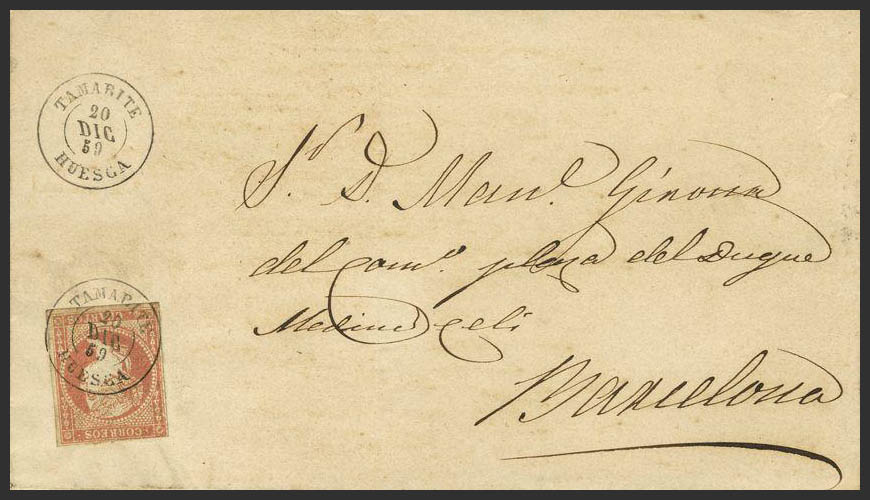 TAMARITE
20
DIC
59
HUESCA
Sr. D. Manl. Girona
del comº. plaza del Duque
Medinaceli
Barcelona
TAMARITE
20
DIC
59
HUESCA
CORREOS